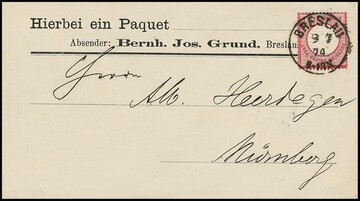 Hierbei ein Paquet
Absender: Bernh. Jos. Grund. Breslau
BRESLAU
9 7
74
Herrn
Alb. Heerdegen
Nürnberg